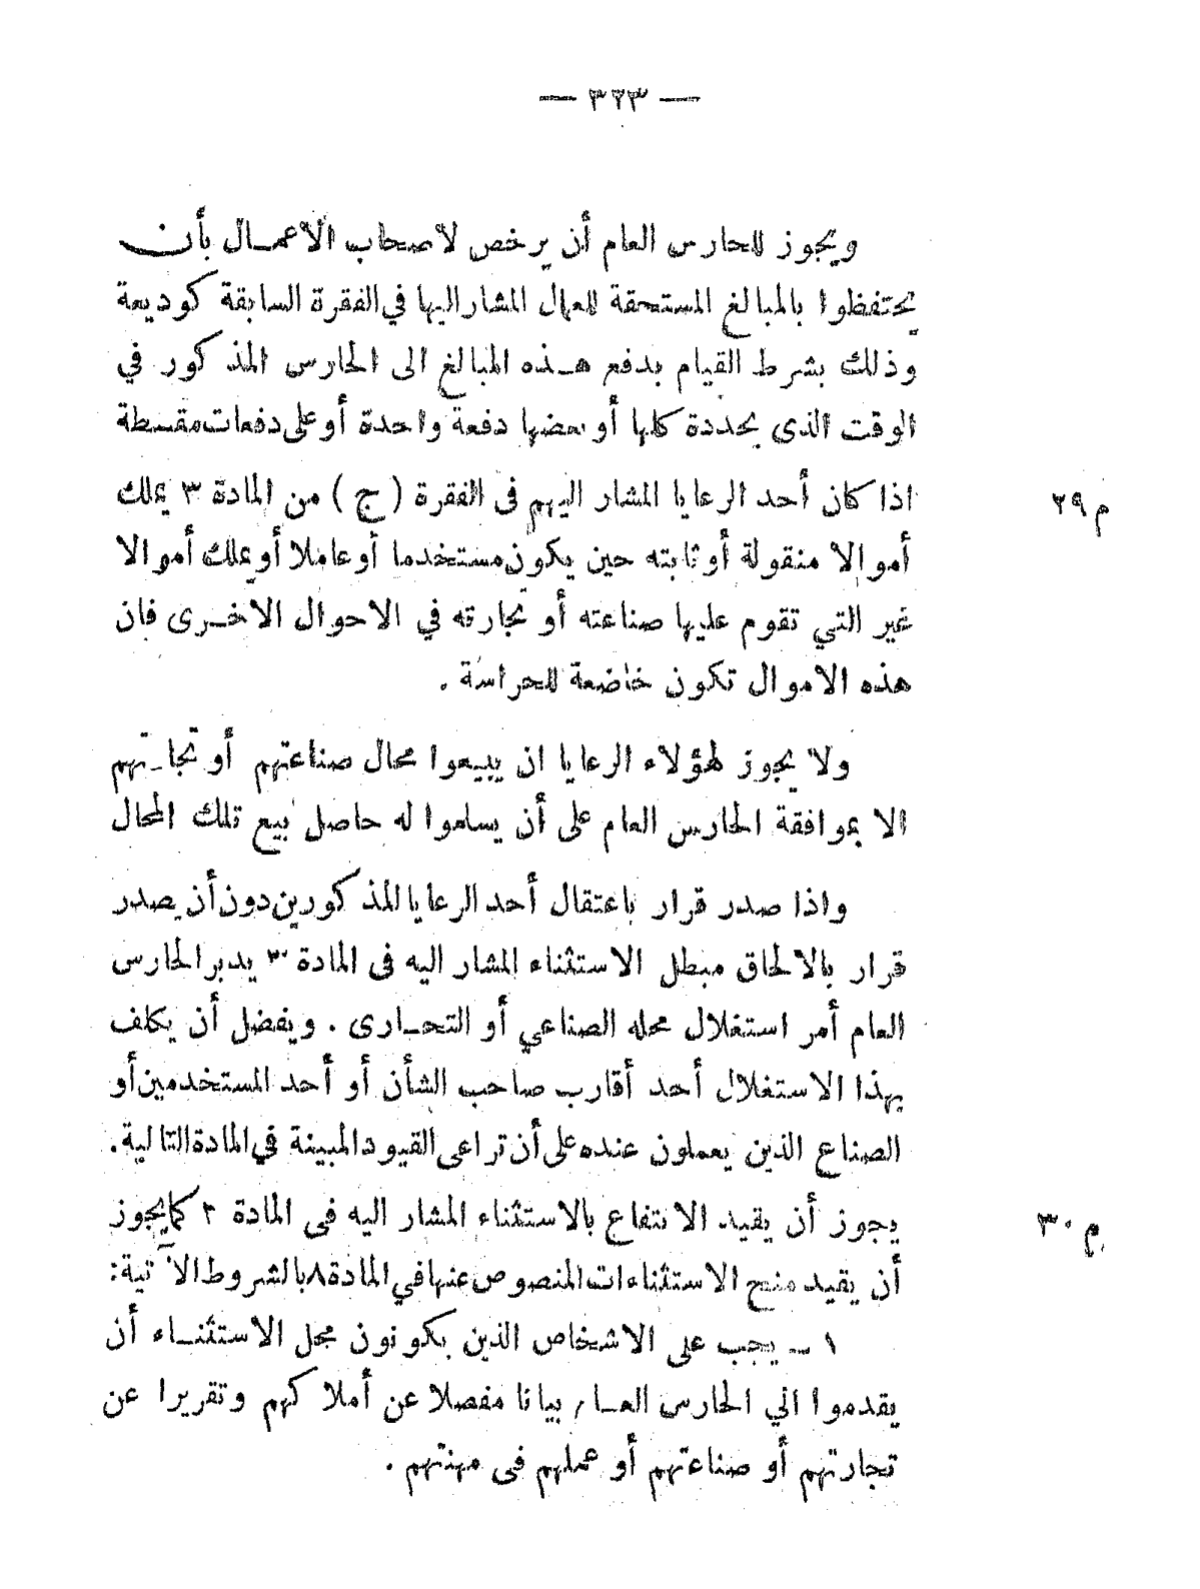 — ٣٢٣ —
ويجوز للحارس العام أن يرخص لاصحاب الاعمال بأن
يحتفظوا بالمبالغ المستحقة للعمال المشار اليها في الفقرة السابقة كوديعة
وذلك بشرط القيام بدفع هذه المبالغ الى الحارس المذكور في
الوقت الذى يحدده كلها أو بعضها دفعة واحدة أو على دفعات مقسطة
م ٢٩ اذا كان أحد الرعايا المشار اليهم فى الفقرة ( ج ) من المادة ٣ يملك
أموالا منقولة أو ثابته حين يكون مستخدما أو عاملا أو يملك أموالا
غير التي تقوم عليها صناعته أو تجارته في الاحوال الاخرى فان
هذه الاموال تكون خاضعة للحراسة .
ولا يجوز لهؤلاء الرعايا ان يبيعوا محال صناعتهم أو تجارتهم
الا بموافقة الحارس العام على أن يسلموا له حاصل بيع تلك المحال
واذا صدر قرار باعتقال أحد الرعايا المذكورين دون أن يصدر
قرار بالالحاق مبطل الاستثناء المشار اليه فى المادة ٣ يدير الحارس
العام أمر استغلال محله الصناعي أو التجارى . ويفضل أن يكلف
بهذا الاستغلال أحد أقارب صاحب الشأن أو أحد المستخدمين أو
الصناع الذين يعملون عنده على أن تراعى القيود المبينة في المادة التالية .
م ٣٠ يجوز أن يقيد الانتفاع بالاستثناء المشار اليه فى المادة ٢ كما يجوز
أن يقيد منح الاستثناءات المنصوص عنها في المادة ٨ بالشروط الآتية :
١ – يجب على الاشخاص الذين يكونون محل الاستثناء أن
يقدموا الي الحارس العام بيانا مفصلا عن أملاكهم وتقريرا عن
تجارتهم أو صناعتهم أو عملهم فى مهنتهم .